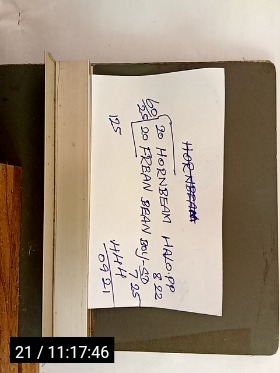 HORNBEAM
60 20 HORNBEAM HALO,PP
8 22
55 20 ERBAN BEAN BOY-SD
7 25
125
HHH
0921
21 / 11:17:46